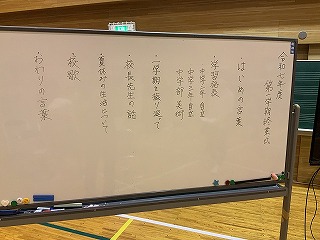 令和七年度
第一学期終業式
はじめの言葉
・学習発表
中学一年 自立
中学二年 自立
中学部 美術
・一学期を振り返って
・校長先生の話
・夏休みの生活について
校歌
・おわりの言葉